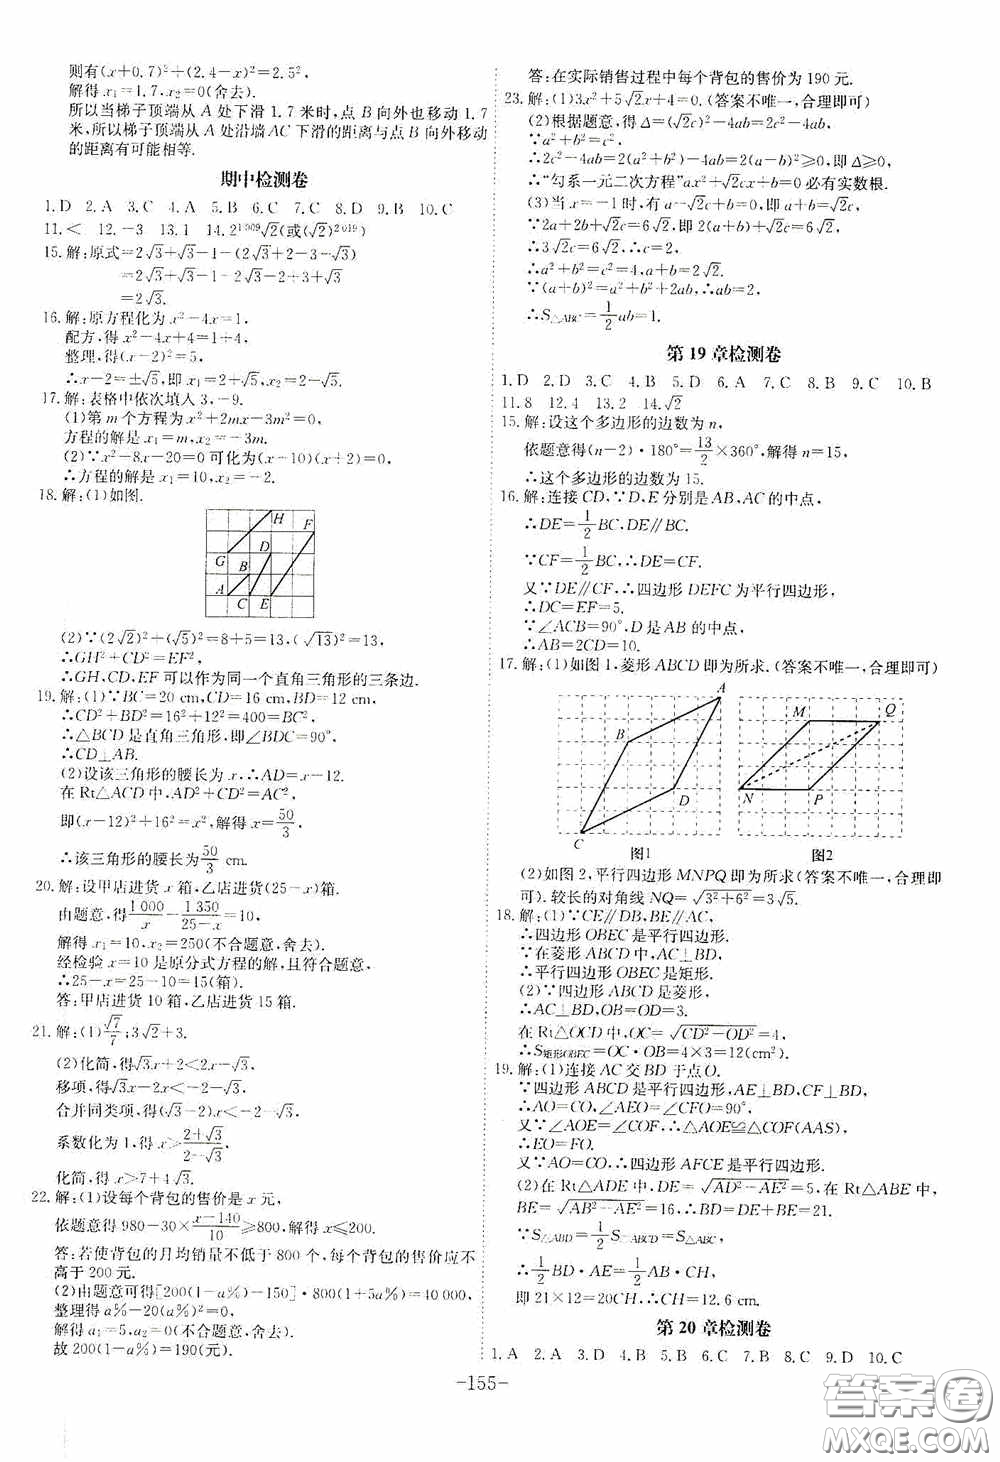 则有(x+0.7)²+(2.4-x)²=2.5²,
解得 x₁=1.7,x₂=0(舍去).
所以当梯子顶端从 A 处下滑 1.7 米时,点 B 向外也移动 1.7
米,所以梯子顶端从 A 处沿墙 AC 下滑的距离与点 B 向外移动
的距离有可能相等.
期中检测卷
1.D 2.A 3.C 4.A 5.B 6.C 7.C 8.D 9.B 10.C
11.< 12.-3 13.1 14.2¹⁰⁰⁹√2(或(√2)²⁰¹⁹)
15.解:原式=2√3+√3-1-(2√3+2-3-√3)
=2√3+√3-1-2√3-2+3+√3
=2√3.
16.解:原方程化为 x²-4x=1,
配方,得 x²-4x+4=1+4,
整理,得(x-2)²=5,
∴x-2=±√5,即 x₁=2+√5,x₂=2-√5.
17.解:表格中依次填入 3,-9.
(1)第 m 个方程为 x²+2mx-3m²=0,
方程的解是 x₁=m,x₂=-3m.
(2)∵x²-8x-20=0 可化为(x-10)(x+2)=0,
∴方程的解是 x₁=10,x₂=-2.
18.解:(1)如图.
H
F
G
B
D
A
C
E
(2)∵(2√2)²+(√5)²=8+5=13,(√13)²=13,
∴GH²+CD²=EF²,
∴GH,CD,EF 可以作为同一个直角三角形的三条边.
19.解:(1)∵BC=20 cm,CD=16 cm,BD=12 cm,
∴CD²+BD²=16²+12²=400=BC²,
∴△BCD 是直角三角形,即∠BDC=90°,
∴CD⊥AB.
(2)设该三角形的腰长为 x,∴AD=x-12.
在 Rt△ACD 中,AD²+CD²=AC²,
即(x-12)²+16²=x²,解得 x=50/3,
∴该三角形的腰长为 50/3 cm.
20.解:设甲店进货 x 箱,乙店进货(25-x)箱.
由题意,得 1 000/x - 1 350/(25-x) =10,
解得 x₁=10,x₂=250(不合题意,舍去).
经检验 x=10 是原分式方程的解,且符合题意,
∴25-x=25-10=15(箱).
答:甲店进货 10 箱,乙店进货 15 箱.
21.解:(1)√7/7;3√2+3.
(2)化简,得√3x+2<2x-√3,
移项,得√3x-2x<-2-√3,
合并同类项,得(√3-2)x<-2-√3,
系数化为 1,得 x>(2+√3)/(2-√3),
化简,得 x>7+4√3.
22.解:(1)设每个背包的售价是 x 元,
依题意得 980-30×(x-140)/10≥800,解得 x≤200.
答:若使背包的月均销量不低于 800 个,每个背包的售价应不
高于 200 元.
(2)由题意可得[200(1-a%)-150]·800(1+5a%)=40 000,
整理得 a%-20(a%)²=0,
解得 a₁=5,a₂=0(不合题意,舍去).
故 200(1-a%)=190(元).
答:在实际销售过程中每个背包的售价为 190 元.
23.解:(1)3x²+5√2x+4=0.(答案不唯一,合理即可)
(2)根据题意,得 Δ=(√2c)²-4ab=2c²-4ab,
∵a²+b²=c²,
∴2c²-4ab=2(a²+b²)-4ab=2(a-b)²≥0,即 Δ≥0,
∴“勾系一元二次方程”ax²+√2cx+b=0 必有实数根.
(3)当 x=-1 时,有 a-√2c+b=0,即 a+b=√2c,
∵2a+2b+√2c=6√2,即 2(a+b)+√2c=6√2,
∴3√2c=6√2,∴c=2,
∴a²+b²=c²=4,a+b=2√2.
∵(a+b)²=a²+b²+2ab,∴ab=2,
∴S△ABC=1/2ab=1.
第 19 章检测卷
1.D 2.D 3.C 4.B 5.D 6.A 7.C 8.B 9.C 10.B
11.8 12.4 13.2 14.√2
15.解:设这个多边形的边数为 n,
依题意得(n-2)·180°=13/2×360°,解得 n=15,
∴这个多边形的边数为 15.
16.解:连接 CD,∵D,E 分别是 AB,AC 的中点,
∴DE=1/2BC,DE∥BC.
∵CF=1/2BC,∴DE=CF.
又∵DE∥CF,∴四边形 DEFC 为平行四边形,
∴DC=EF=5.
∵∠ACB=90°,D 是 AB 的中点,
∴AB=2CD=10.
17.解:(1)如图 1,菱形 ABCD 即为所求.(答案不唯一,合理即可)
A
B
D
C
图1
M
Q
N
P
图2
(2)如图 2,平行四边形 MNPQ 即为所求(答案不唯一,合理即
可).较长的对角线 NQ=√(3²+6²)=3√5.
18.解:(1)∵CE∥DB,BE∥AC,
∴四边形 OBEC 是平行四边形.
∵在菱形 ABCD 中,AC⊥BD,
∴平行四边形 OBEC 是矩形.
(2)∵四边形 ABCD 是菱形,
∴AC⊥BD,OB=OD=3.
在 Rt△OCD 中,OC=√(CD²-OD²)=4,
∴S矩形OBEC=OC·OB=4×3=12(cm²).
19.解:(1)连接 AC 交 BD 于点 O.
∵四边形 ABCD 是平行四边形,AE⊥BD,CF⊥BD,
∴AO=CO,∠AEO=∠CFO=90°,
又∵∠AOE=∠COF,∴△AOE≌△COF(AAS),
∴EO=FO.
又∵AO=CO,∴四边形 AFCE 是平行四边形.
(2)在 Rt△ADE 中,DE=√(AD²-AE²)=5,在 Rt△ABE 中,
BE=√(AB²-AE²)=16,∴BD=DE+BE=21.
∵S△ABD=1/2S▱ABCD=S△ABC,
∴1/2BD·AE=1/2AB·CH,
即 21×12=20CH,∴CH=12.6 cm.
第 20 章检测卷
1.A 2.A 3.D 4.B 5.B 6.C 7.B 8.C 9.D 10.C
-155-
答案卷
MXQE.COM